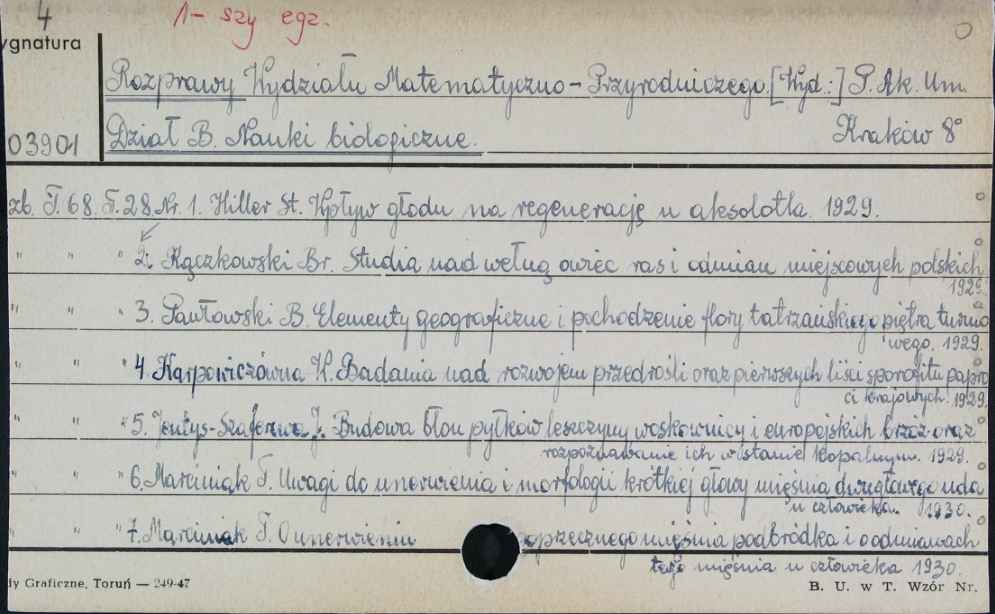 4 1-szy egz.
ygnatura
Rozprawy Wydziału Matematyczno-Przyrodniczego [Wyd.:] P. Ak. Um.
03901 Dział B. Nauki biologiczne. Kraków 8°
zb. T. 68. T. 28 Nr. 1. Hiller St. Wpływ głodu na regenerację u aksolotla. 1929.
" " " 2. Kączkowski Br. Studia nad wełną owiec ras i odmian miejscowych polskich
1929.
" " " 3. Pawłowski B. Elementy geograficzne i pochodzenie flory tatrzańskiego piętra turnio
wego. 1929.
" " " 4. Karpowiczówna W. Badania nad rozwojem przedrośli oraz pierwszych liści sporofitu papro
ci krajowych. 1929.
" " " 5. Jentys-Szaferowa J. Budowa błon pyłków leszczyny woskownicy i europejskich brzóz oraz
rozpoznawanie ich w stanie kopalnym. 1929.
" " " 6. Marciniak T. Uwagi do unerwienia i morfologii krótkiej głowy mięśnia dwugłowego uda
u człowieka. 1930.
" " " 7. Marciniak T. O unerwieniu oprzecznego mięśnia podbródka i o odmianach
tego mięśnia u człowieka 1930.
dy Graficzne, Toruń — 249-47 B. U. w T. Wzór Nr.